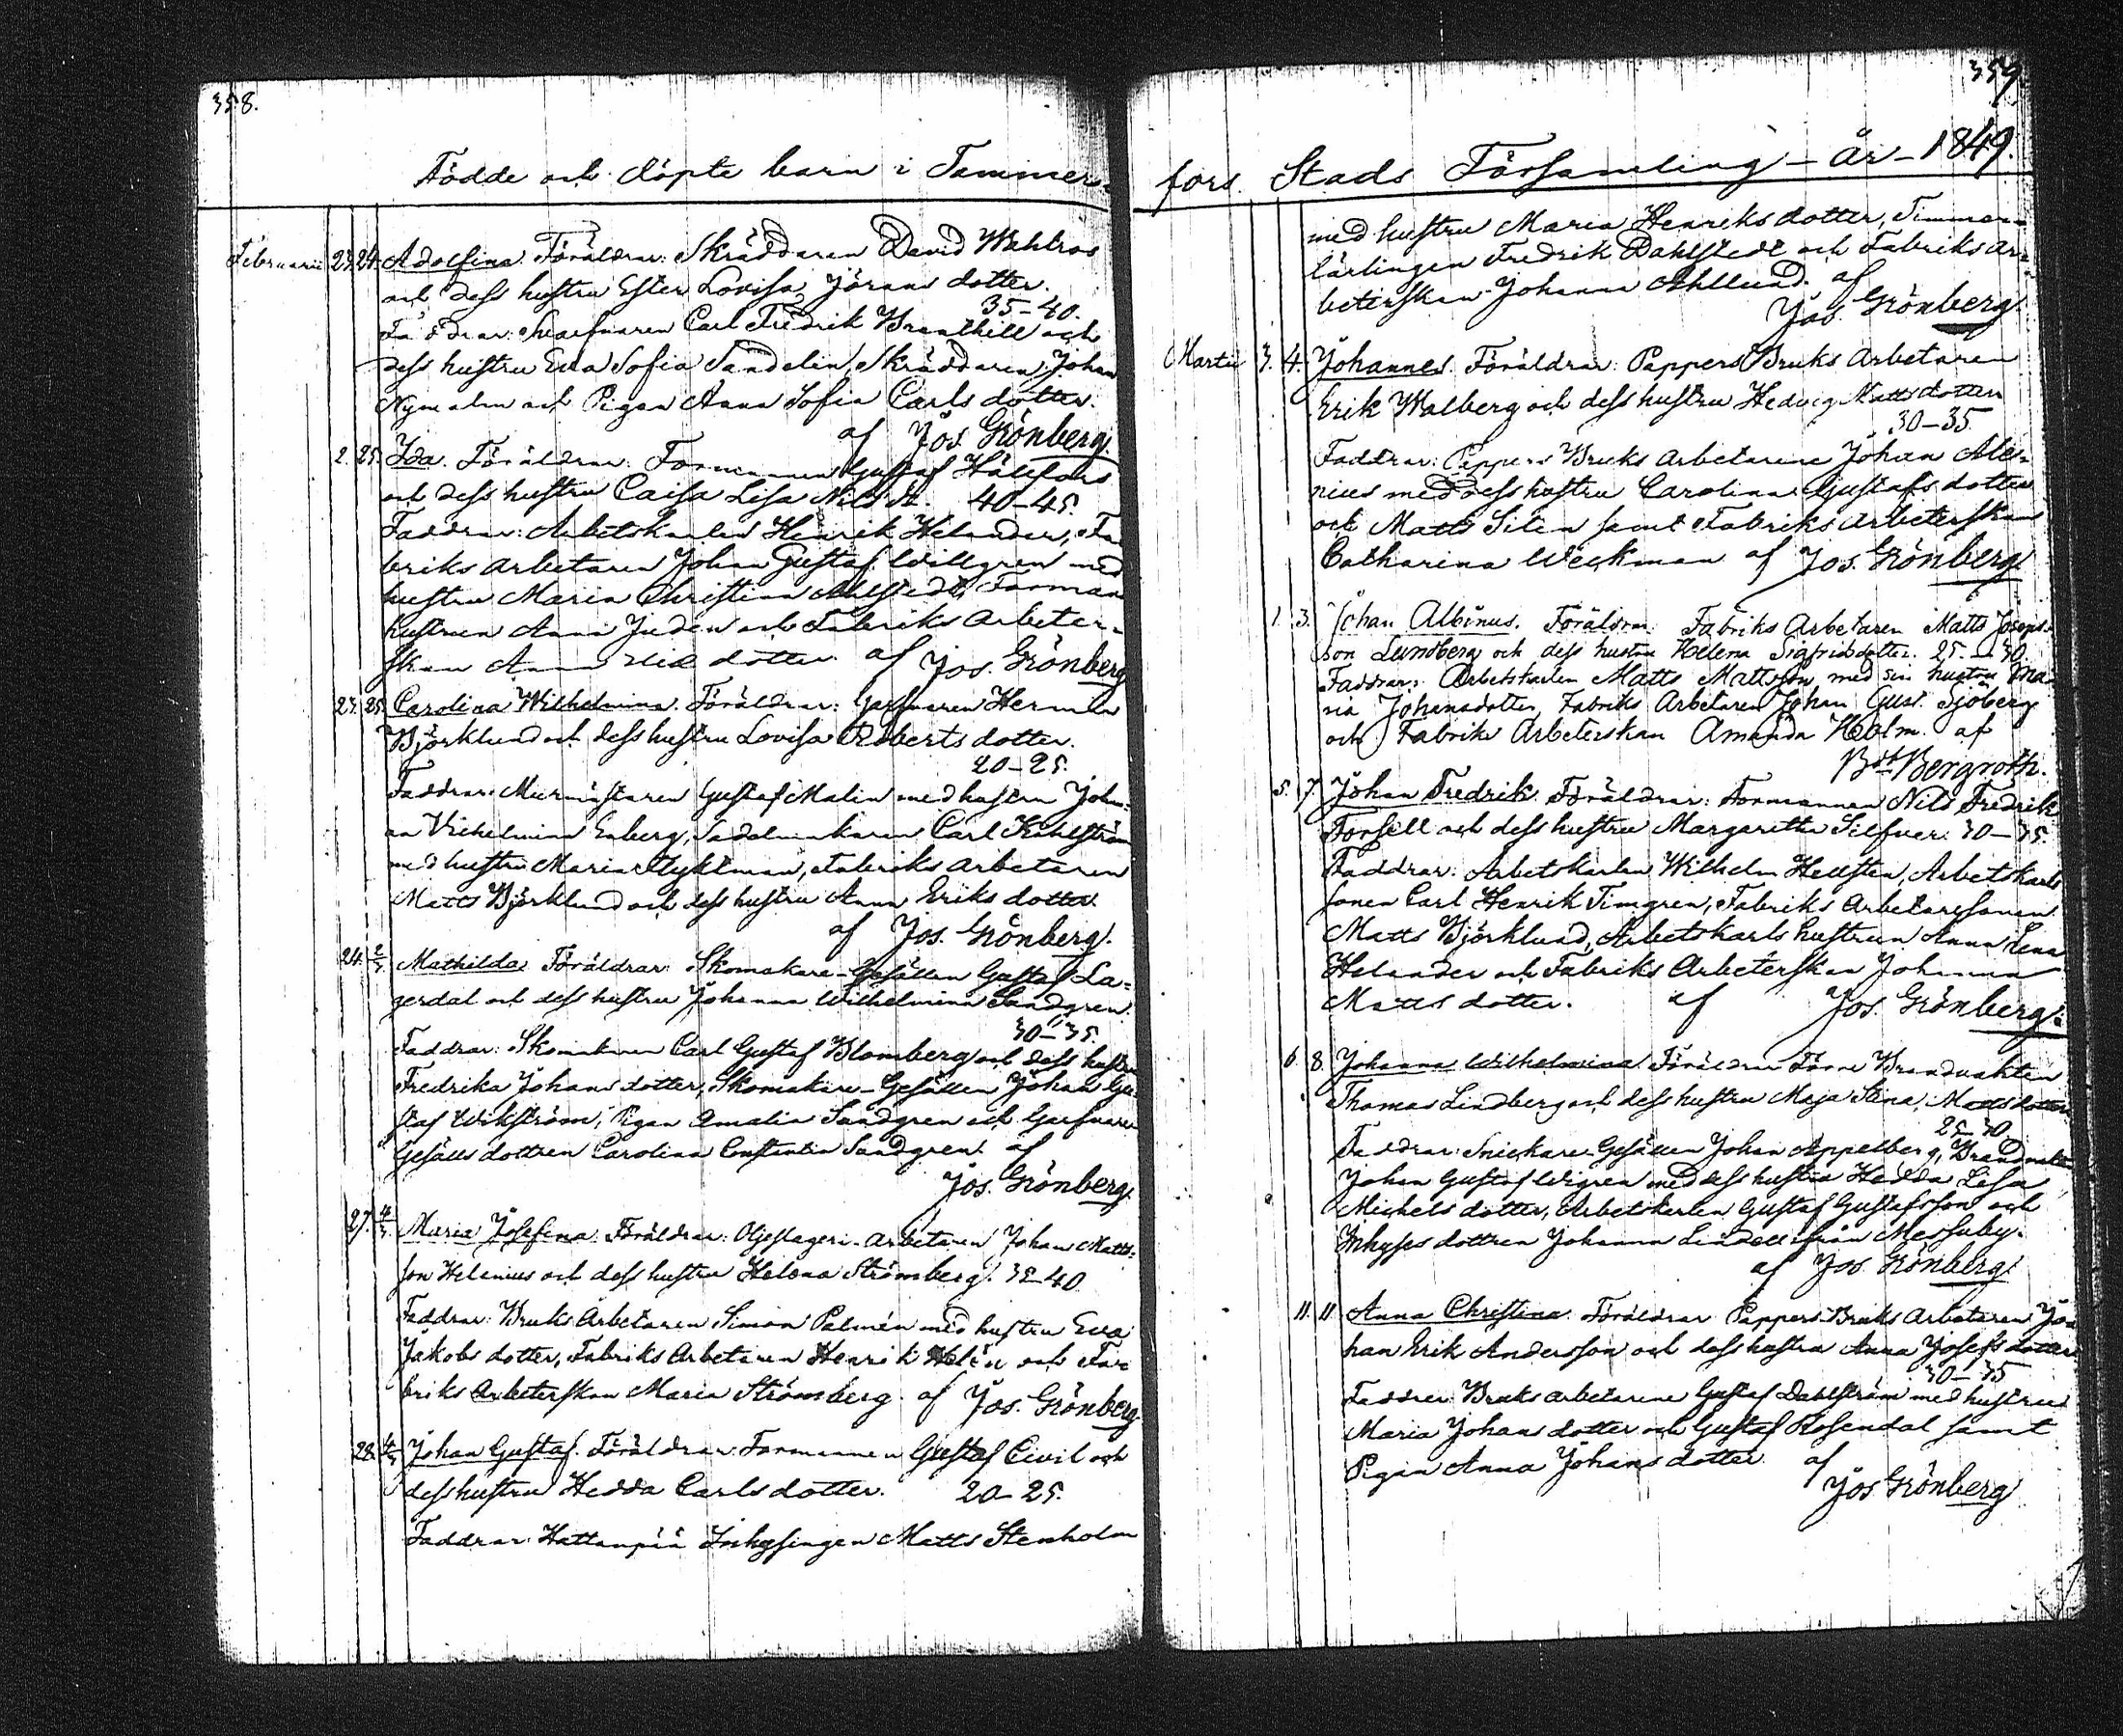 358.
Födde och döpte barn i Tammer-
Februarii 23. 24. Adolfina. Föräldrar: Skräddaren David Wahlros
och dess hustru Ester Lovisa Jörans dotter.
35-40.
Faddrar: Garfvaren Carl Fredrik Branthill och
dess hustru Eva Sofia Sandelin, Skräddaren Johan
Nymalm och Pigan Anna Sofia Carls dotter.
af Jos. Grönberg.
2. 25. Ida. Föräldrar: Formannen Gustaf Hällfors
och dess hustru Caisa Lisa Nils dr. 40-45.
Faddrar: Arbetskarlen Henrik Helander, Fa
briks arbetaren Johan Gustaf Willgren med
hustru Maria Christina Ahlstedt, Forman
hustrun Anna Juden och Fabriks Arbeter-
skan Anna dotter. af Jos. Grönberg
23. 25. Carolina Wilhelmina. Föräldrar: Garfvaren Herman
Björklund och dess hustru Lovisa Roberts dotter.
20-25.
Faddrar: Murmästaren Gustaf Malin med hustru Joha-
na Vilhelmina Enberg, Sadelmakaren Carl Kihlström
med hustru Maria Flyktman, Fabriks arbetaren
Matts Björklund och dess hustru Anna Eriks dotter.
af Jos. Grönberg.
24. 2/3 Mathilda. Föräldrar: Skomakare-Gesällen Gustaf La-
gerdal och dess hustru Johanna Wilhelmina Sandgren.
30-35.
Faddrar: Skomakaren Carl Gustaf Blomberg och dess hustru
Fredrika Johans dotter, Skomakare-Gesällen Johan Gu-
staf Wikström, Pigan Amalia Sandgren och Garfvare
Gesälls dottren Carolina Constantia Sandgren. af
Jos. Grönberg.
27. 4/3 Maria Josefina. Föräldrar: Oljeslageri-Arbetaren Johan Matts-
son Helenius och dess hustru Helena Strömberg. 35-40
Faddrar: Bruks Arbetaren Simon Palmén med hustru Eva
Jakobs dotter, Fabriks Arbetaren Henrik Helén och Fa-
briks Arbeterskan Maria Strömberg. af Jos. Grönberg
28. 4/3 Johan Gustaf. Föräldrar: Formannen Gustaf Civil och
dess hustru Hedda Carls dotter. 20-25.
Faddrar: Hattanpää Inhysingen Matts Stenholm
359.
fors Stads Församling - år - 1849.
med hustru Maria Henriks dotter, Timmer-
lärlingen Fredrik Dahlstedt och Fabriks ar-
beterskan Johanna Ahllund. af
Jos. Grönberg.
Martii 3. 4. Johannes. Föräldrar: Pappers Bruks Arbetaren
Erik Walberg och dess hustru Hedvig Matts dotter
30-35
Faddrar: Pappers Bruks Arbetarene Johan Ale-
nius med dess hustru Carolina Gustafs dotter
och Matts Siten samt Fabriks Arbeterskan
Catharina Weckman af Jos. Grönberg.
1. 3. Johan Albinus. Föräldrar: Fabriks Arbetaren Matts Joseps-
son Lundberg och dess hustru Helena Sigfridsdotter. 25-30.
Faddrar: Arbetskarlen Matts Mattsson med sin hustru Ma-
ria Johansdotter, Fabriks Arbetaren Johan Gust. Sjöberg
och Fabriks Arbeterskan Amanda Holm. af
Bergroth.
5. 7. Johan Fredrik. Föräldrar: Formannen Nils Fredrik
Forsell och dess hustru Margaretha Silfver. 30-35.
Faddrar: Arbetskarlen Wilhelm Hellsten, Arbetskarls
sonen Carl Henrik Timgren, Fabriks Arbetaresonen
Matts Björklund, Arbetskarls hustrun Anna Lena
Helander och Fabriks Arbeterskan Johanna
Matts dotter. af Jos. Grönberg.
6. 8. Johanna Wilhelmina. Föräldrar: Förre Brandvakten
Thomas Lindberg och dess hustru Maja Stina Matts dotter
25-30.
Faddrar: Snickare-Gesällen Johan Appelberg, Brandvakten
Johan Gustaf Wigren med dess hustru Hedda Lisa
Michels dotter, Arbetskarlen Gustaf Gustafsson och
Inhyses dottren Johanna Lindell från Messuby.
af Jos. Grönberg.
11. 11. Anna Christina. Föräldrar: Pappers-Bruks Arbetaren Jo-
han Erik Andersson och dess hustru Anna Josefs dotter
30-35
Faddrar: Bruks arbetarene Gustaf Dahlström med hustru
Maria Johans dotter och Gustaf Rosendal samt
Pigan Anna Johans dotter. af
Jos Grönberg